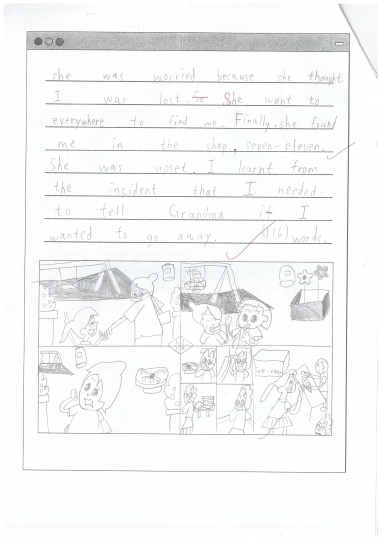 she was worried because she thought
I was lost. so She went to
everywhere to find me. Finally, she found
me in the shop, seven-eleven.
She was upset. I learnt from
the incident that I needed
to tell Grandma if I
wanted to go away. (116) words.